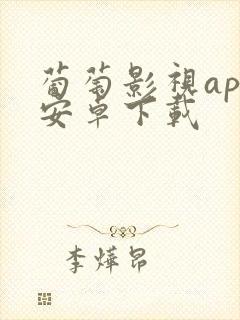 葡萄影視ap
安卓下載
李燁昂